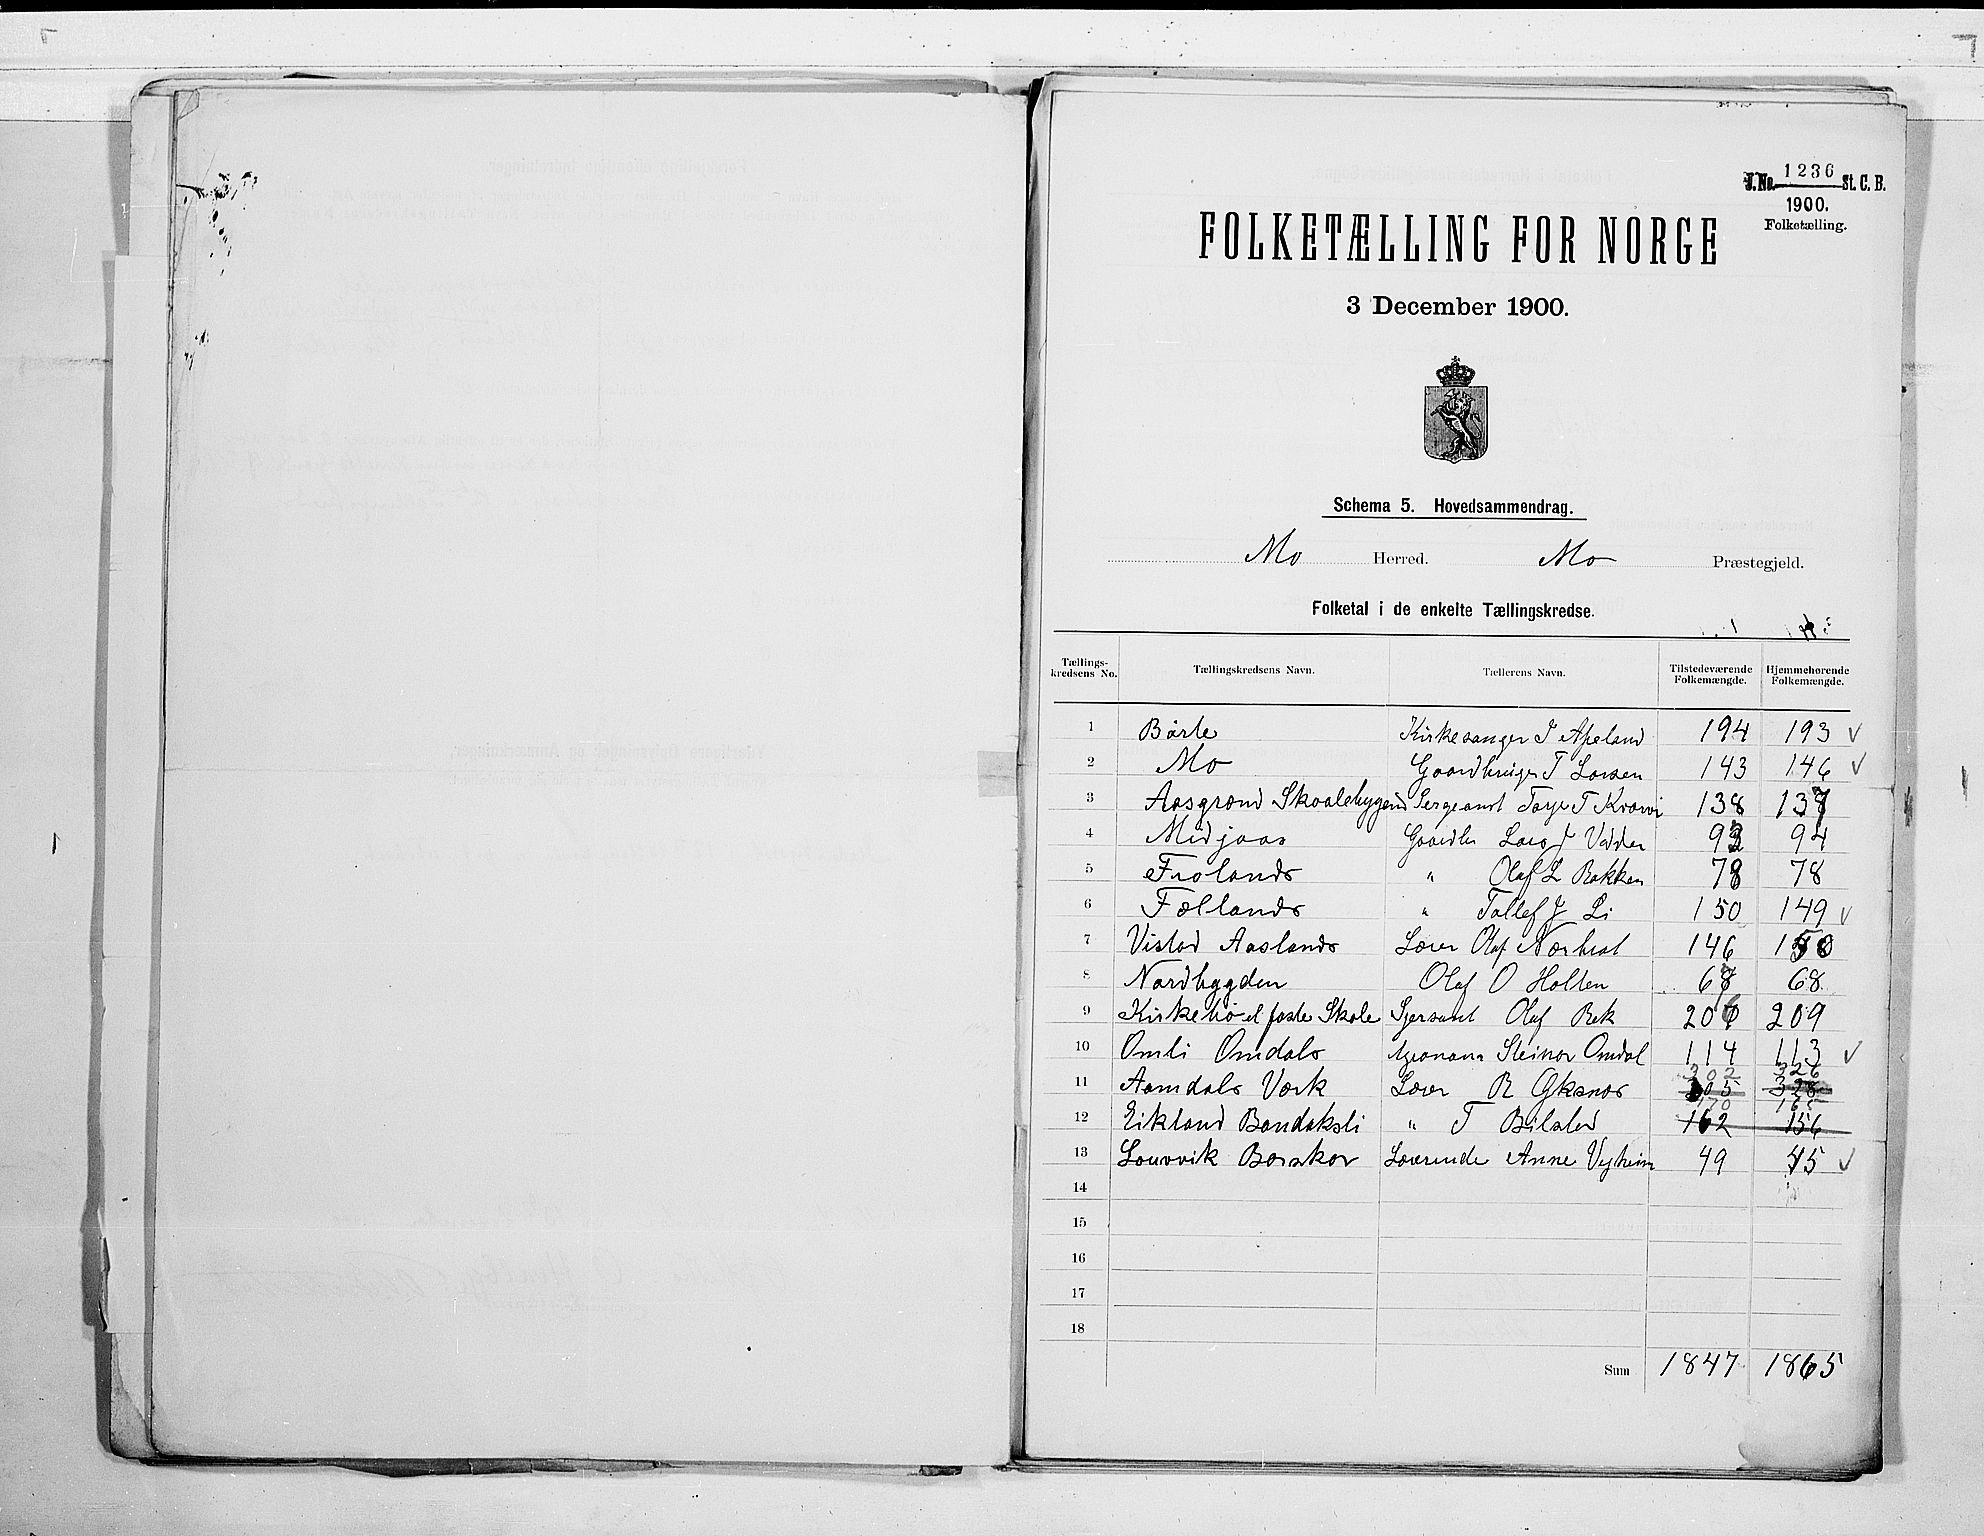 J. No. 1236 St. C. B.
1900.
Folketælling.
FOLKETÆLLING FOR NORGE
3 December 1900.
Schema 5. Hovedsammendrag.
Mo Herred. Mo Præstegjeld.
Folketal i de enkelte Tællingskredse.
Tællingskredsens No. Tællingskredsens Navn. Tællerens Navn. Tilstedeværende Folkemængde. Hjemmehørende Folkemængde.
1 Børte Kirkesanger J Apeland 194 193 ✓
2 Mo Gaardbruger T Larsen 143 146 ✓
3 Aasgrend Skaalebygend Sergeant Tarje T Kvaavi 138 137
4 Midjaas Gaardbr Lars J Vadder 92 94
5 Frolands " Olaf L Bakken 78 78
6 Fællands " Tallef J Li 150 149 ✓
7 Vistad Aaslands Lærer Olaf Nærbest 146 150
8 Nordbygden Olaf O Holten 67 68
9 Kirkebø el faste Skole Sjersant Olaf Bek 206 209
10 Omli Omdals Steinar Omdal 114 113 ✓
302 326
11 Aamdals Værk Lærer R Gksnes 305 328
170 165
12 Eikland Bandaksli " T Bilsled 162 156
13 Laurvik Bærskor Lærerinde Anne Vejheim 49 45 ✓
14
15
16
17
18
Sum 1847 1865